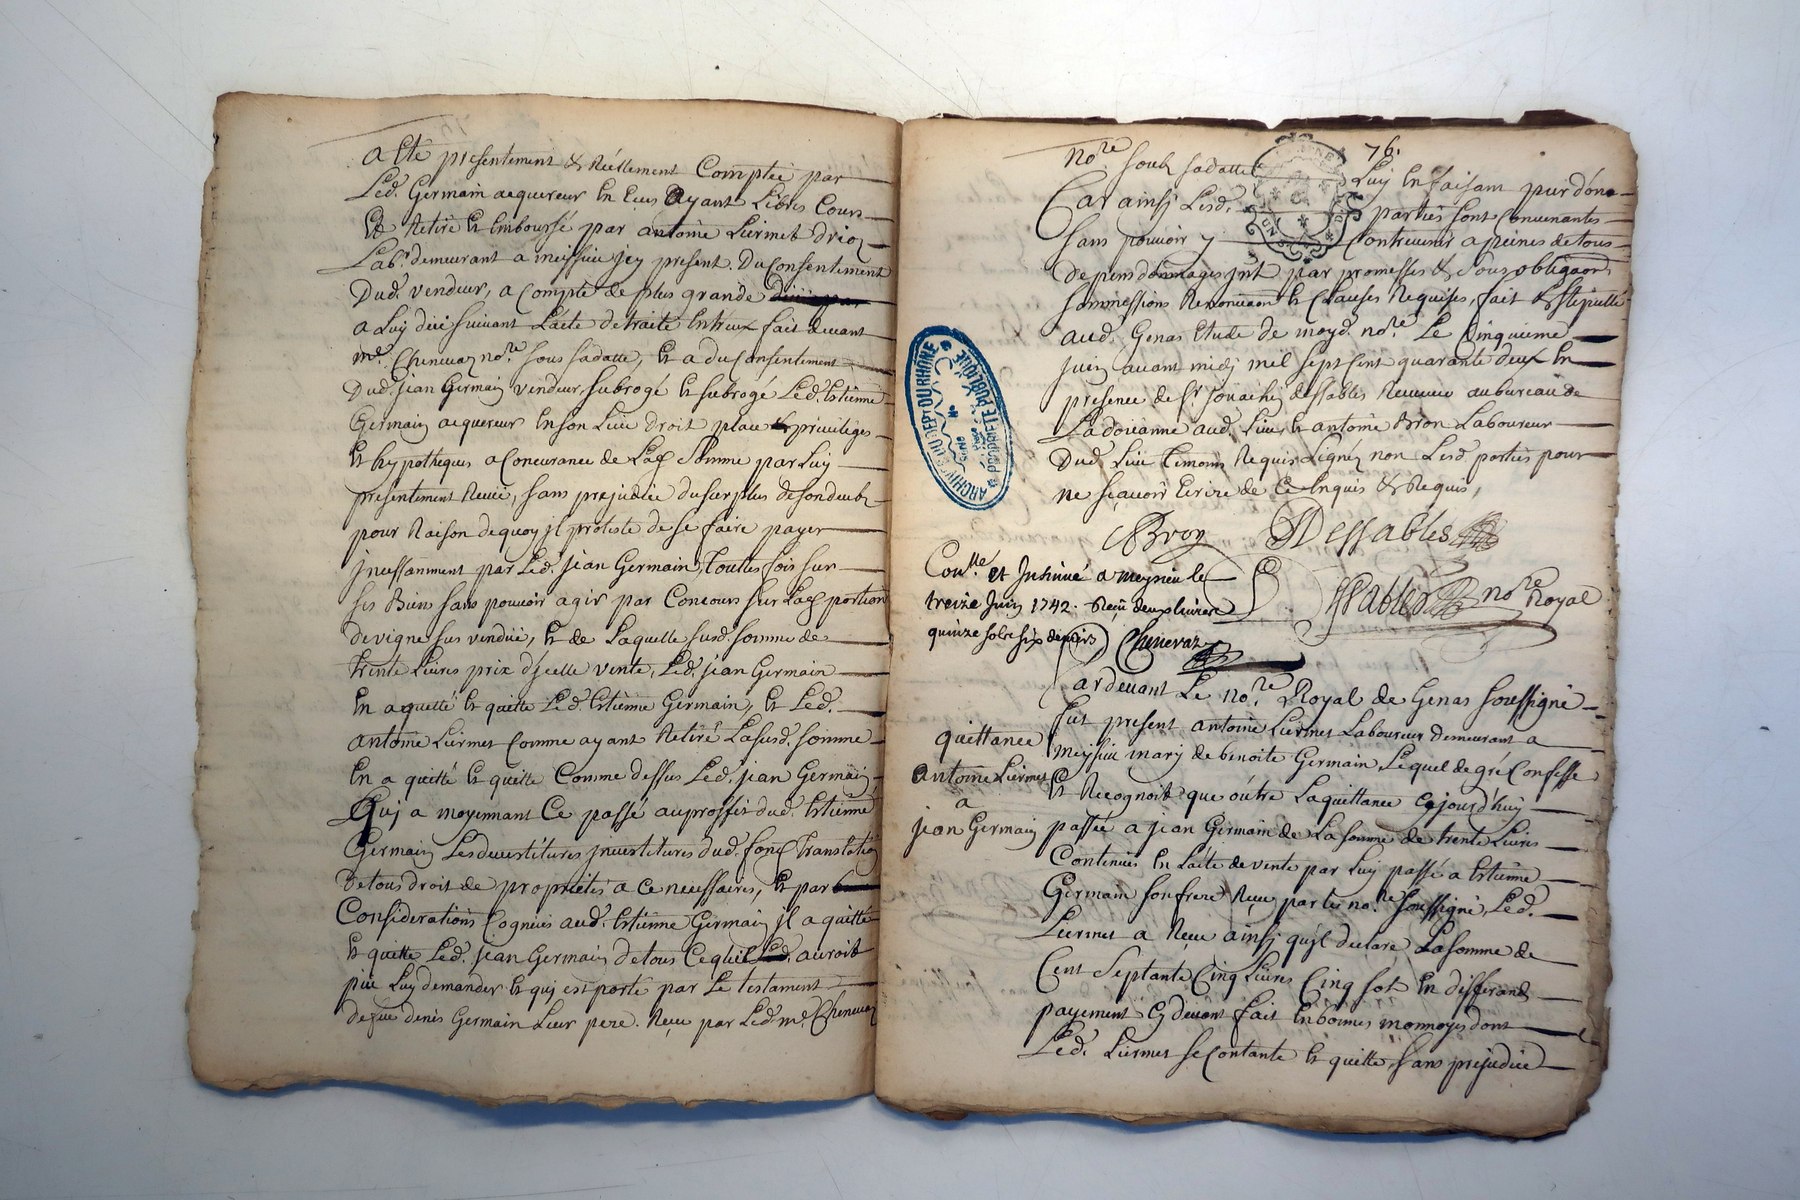 a Ete presentement & Réellement Comptée par
Led. Germain acquereur En Ecus ayant Libres Cours
Et Retiré Et Emboursé par antoine Liermet
Lab.r demeurant a meissiu jcy present. Du Consentement
Dud. vendeur, a Compte de plus grande
a Luy düe Suivant L'acte de traité Entreux fait devant
m.e Chenevaz no.re sous sa datte, Et a du Consentement
Dud. jean Germain vendeur, Subrogé Et Subrogé Led. Estienne
Germain acquereur En son Lieu droit place & privileges
Et hypotheques a Concurance de Lad. Somme par Luy
presentement Reçüe, Sans prejudice du surplus de son deub
pour Raison de quoy jl proteste de se faire payer
jncessamment par Led. jean Germain, toutes fois sur
ses Biens sans pouvoir agir par Concours sur Lad. portion
de vigne sus vendüe, Et de Laquelle susd. somme de
trente Livres prix d'jcelle vente, Led. jean Germain
En a quetté Et quitte Led. Estienne Germain, Et Led.
antoine Liermet Comme ayant Retiré La susd. somme
En a quitté Et quitte Comme dessus Led. jean Germain
Quj a moyennant Ce passé au proffit dud. Estienne
Germain Les devestitures jnvestitures dud. fond Translation
De tous droit de proprietés a ce necessaires, Et par
Considerations Cognües aud. Estienne Germain jl a quitté
Et quitte Led. jean Germain de tous Ce quil auroit
püe Luy demander Et quj est porté par Le testament
de feu denis Germain Leur pere. Reçu par Led. m.e Chenevaz
76.
No.re soub sa datte Luy En faisant pur don
Car ainsj Lesd. parties sont Convenantes
Sans pouvoir y Contrevenir a peines de tous
depens dommages jnt. par promesses & Sous obligaon
Sommessions Renonciaon Et Clauses Requises, fait & Stipullé
aud. Genas Etude de moyd. no.re Le Cinquieme
juin avant midj mil sept Cent quarante deux En
presence de S.r jouachin dessables Receveur au bureau de
La doüanne aud. Lieu, Et antoine Bron Laboureur
Dud. Lieu temoins Requis Signéz non Lesd. parties pour
ne sçavoir Ecrire de Ce Enquis & Requis,
ABron Dessables
Dessables no.re Royal
Con.lle et Insinué a Meyzieu le
treize Juin 1742. Reçu deux livres
quinze sols six deniers Chenevaz
quittance
antoine Liermet
a
jean Germain
Pardevant Le no.re Royal de Genas Soussigné
fut present antoine Liermet Laboureur demeurant a
meyssiu marj de benoite Germain, Lequel de gré Confesse
Et Recognoit que outre La quittance Cejourd'huy
passée a jean Germain de La somme de trente Livres
Contenüe En L'acte de vente par Luy passé a Estienne
Germain son frere Reçu par les no.re soussigné, Led.
Liermet a Reçu ainsj qu'jl declare La somme de
Cent Septante Cinq Livres Cinq sol En differends
payement Cy devant fait En bonnes monnoyes dont
Led. Liermet se Contante Et quitte, sans prejudice
ARCHIVES DU DEPT DU RHÔNE
PROPRIETE PUBLIQUE